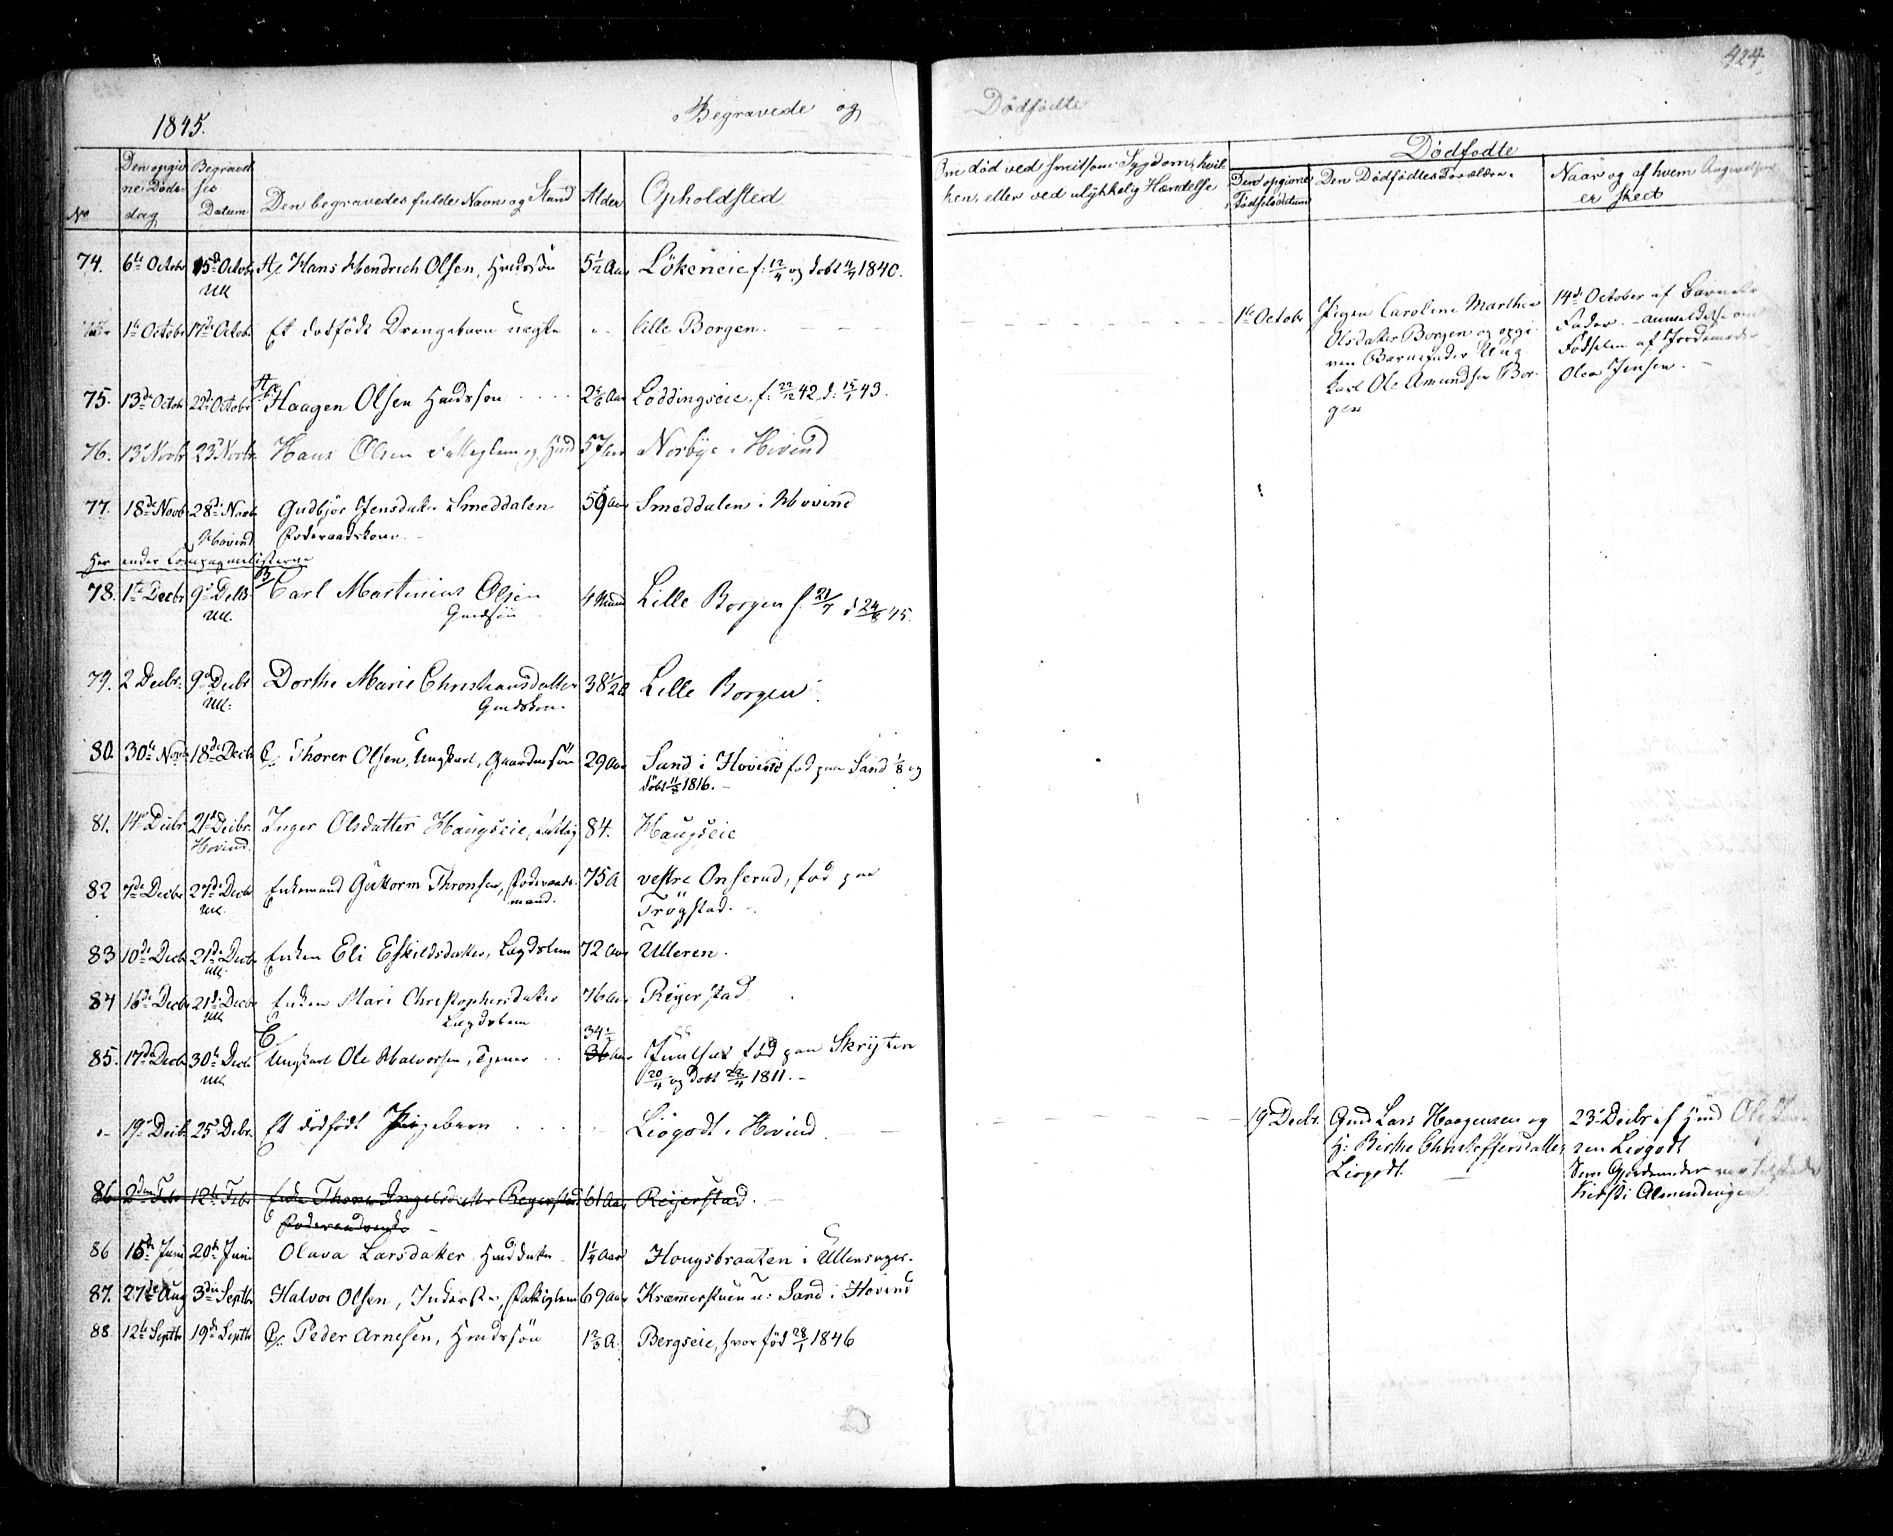 424
1845.
Begravede og
Dødfødte
No
Den opgivne Dødsdag
Begravelses Datum
Den begravedes fulde Navn og Stand
Alder
Opholdsted
Om død ved smitsom Sygdom, hvilken, eller ved ulykkelig Hændelse
Dødfødte
Den opgivne Fødselsdatum
Den Dødfødtes Forældre.
Naar og af hvem Angivelsen er skeet
74. 6te Octobr 15de Octobr A/ Hans Hendrich Olsen, Huusdsøn 5 1/2 Aar Lökeneie f: 12/4 og døbt 4/7 1840.
Ull
1te October 17de Octobr Et dødfødt Drengebarn uægte " lille Borgen.
1te Octobr
Pigen Caroline Marthea
Olsdatter Borgen og opgi-
ven Barnefader Ung-
karl Ole Amundsen Bor-
gen
14de October af Barnets
Fader. - Anmeldelse om
Fødselen af Jordemoder
Olea Jensen. -
75. 13de Octobr 22de Octobr A/ Haagen Olsen Huusdssøn 2 5/6 Aar Loddingseie. f: 22/12 42, d: 15/1 43.
76. 13de Novbr 23de Novbr Hans Olsen Fattiglem og Huusd 57 Aar Norbye i Hovind
77. 18de Novb 28de Novb Gudbjør Jensdatter Smeddalen 59 Aar Smeddalen i Hovind
Hovind Føderaadskone -
Her ender Compagnielisterne
78. 1te Decbr 9de Decb B/ Carl Martinius Olsen 4 Maand Lille Borgen f. 21/7 d 24/8 45.
Ull. Gmdsøn
79. 2 Decbr. 9de Decbr Dorthe Marie Christiansdatter 38 1/2 A Lille Borgen.
Ull: Gmdskone.
80. 30te Nov 18de Decbr C/. Thorer Olsen, Ungkarl, Gaardmsøn 29 Aar Sand i Hovind fød paa Sand 1/8 og
døbt 11/8 1816. -
81. 14de Decbr 21de Decbr. Inger Olsdatter Haugseie, Fattig 84. Haugseie
Hovind.
82 7de Decbr 27de Decbr Enkemand Guttorm Thronsen, Føderaads- 75 A vestre Onserud, fød paa
Ull. mand. Trögstad. -
83 10de Decbr 21de Decbr Enken Eli Eskildsdatter, Lægdslem 72 Aar Ulleren.
Ull.
84 16de Decbr 21de Decbr Enken Mari Christophersdatter 76 Aar Reyerstad
Ull Lægdslem
85. 17de Decbr 30te Decb C. Ungkarl Ole Halvorsen, Tjener 34 1/2 36 Aar fød paa Skrytten
Ull 20/4 og døbt 22/4 1811. -
" 19de Decbr 25de Decbr. Et dødfødt Pigebarn Liøgodt i Hovind
19de Decbr.
Gmd Lars Haagensen og
H: Birthe Christoffersdatter
Liøgodt.
23de Decbr af Huusd Ole
sen Liøgodt
Som Gjordemoder var tilstede
Kirsti Almindingen
86 2den Febr 12te Febr Enke Thore Ingebr.datter Reyerstad 61 Aar Reyerstad. -
Føderaadsenke -
86 15de Juni 20de Juni Oluva Larsdatter Huusddatter 1 1/4 Aar Hougsbraaten i Ullensager.
87. 27de Aug 3die Septbr Halvor Olsen, Inderste, Fattiglem 69 Aar Kræmmerstuen u: Sand i Hovind
88. 12te Septbr 19de Septbr C/. Peder Arnesen, Huusdssøn 1 2/3 A. Bergseie, hvor fød 28/1 1846